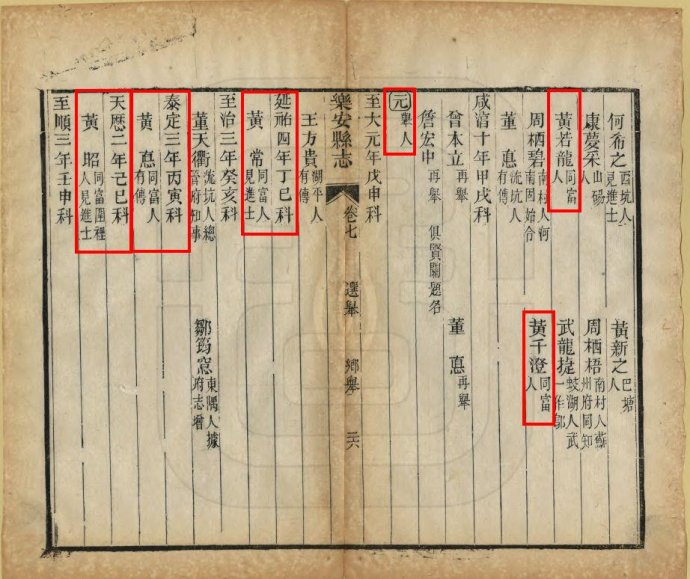 何希之 西坑人見進士 黃新之 巴塘人
康夢采 山碭人 周栖梧 南村人蘇州府同知
黃若龍 同富人 武龍捷 蛟湖人武一作鄔
周栖碧 南村人河南固始令 黃千澄 同富人
董惪 流坑人有傳
咸淳十年甲戌科
曾本立 再舉 董惪 再舉
詹宏中 再舉 俱賢關題名
元 舉人
至大元年戊申科
樂安縣志 卷七 選舉 鄉舉 二六
王方貴 湖平人有傳
延祐四年丁巳科
黃常 同富人見進士
至治三年癸亥科
董天衢 流坑人總管府知事 鄒筠窩 東隅人據府志增
泰定三年丙寅科
黃惪 同富人有傳
天歷二年己巳科
黃昭 同富圍裡人見進士
至順三年壬申科